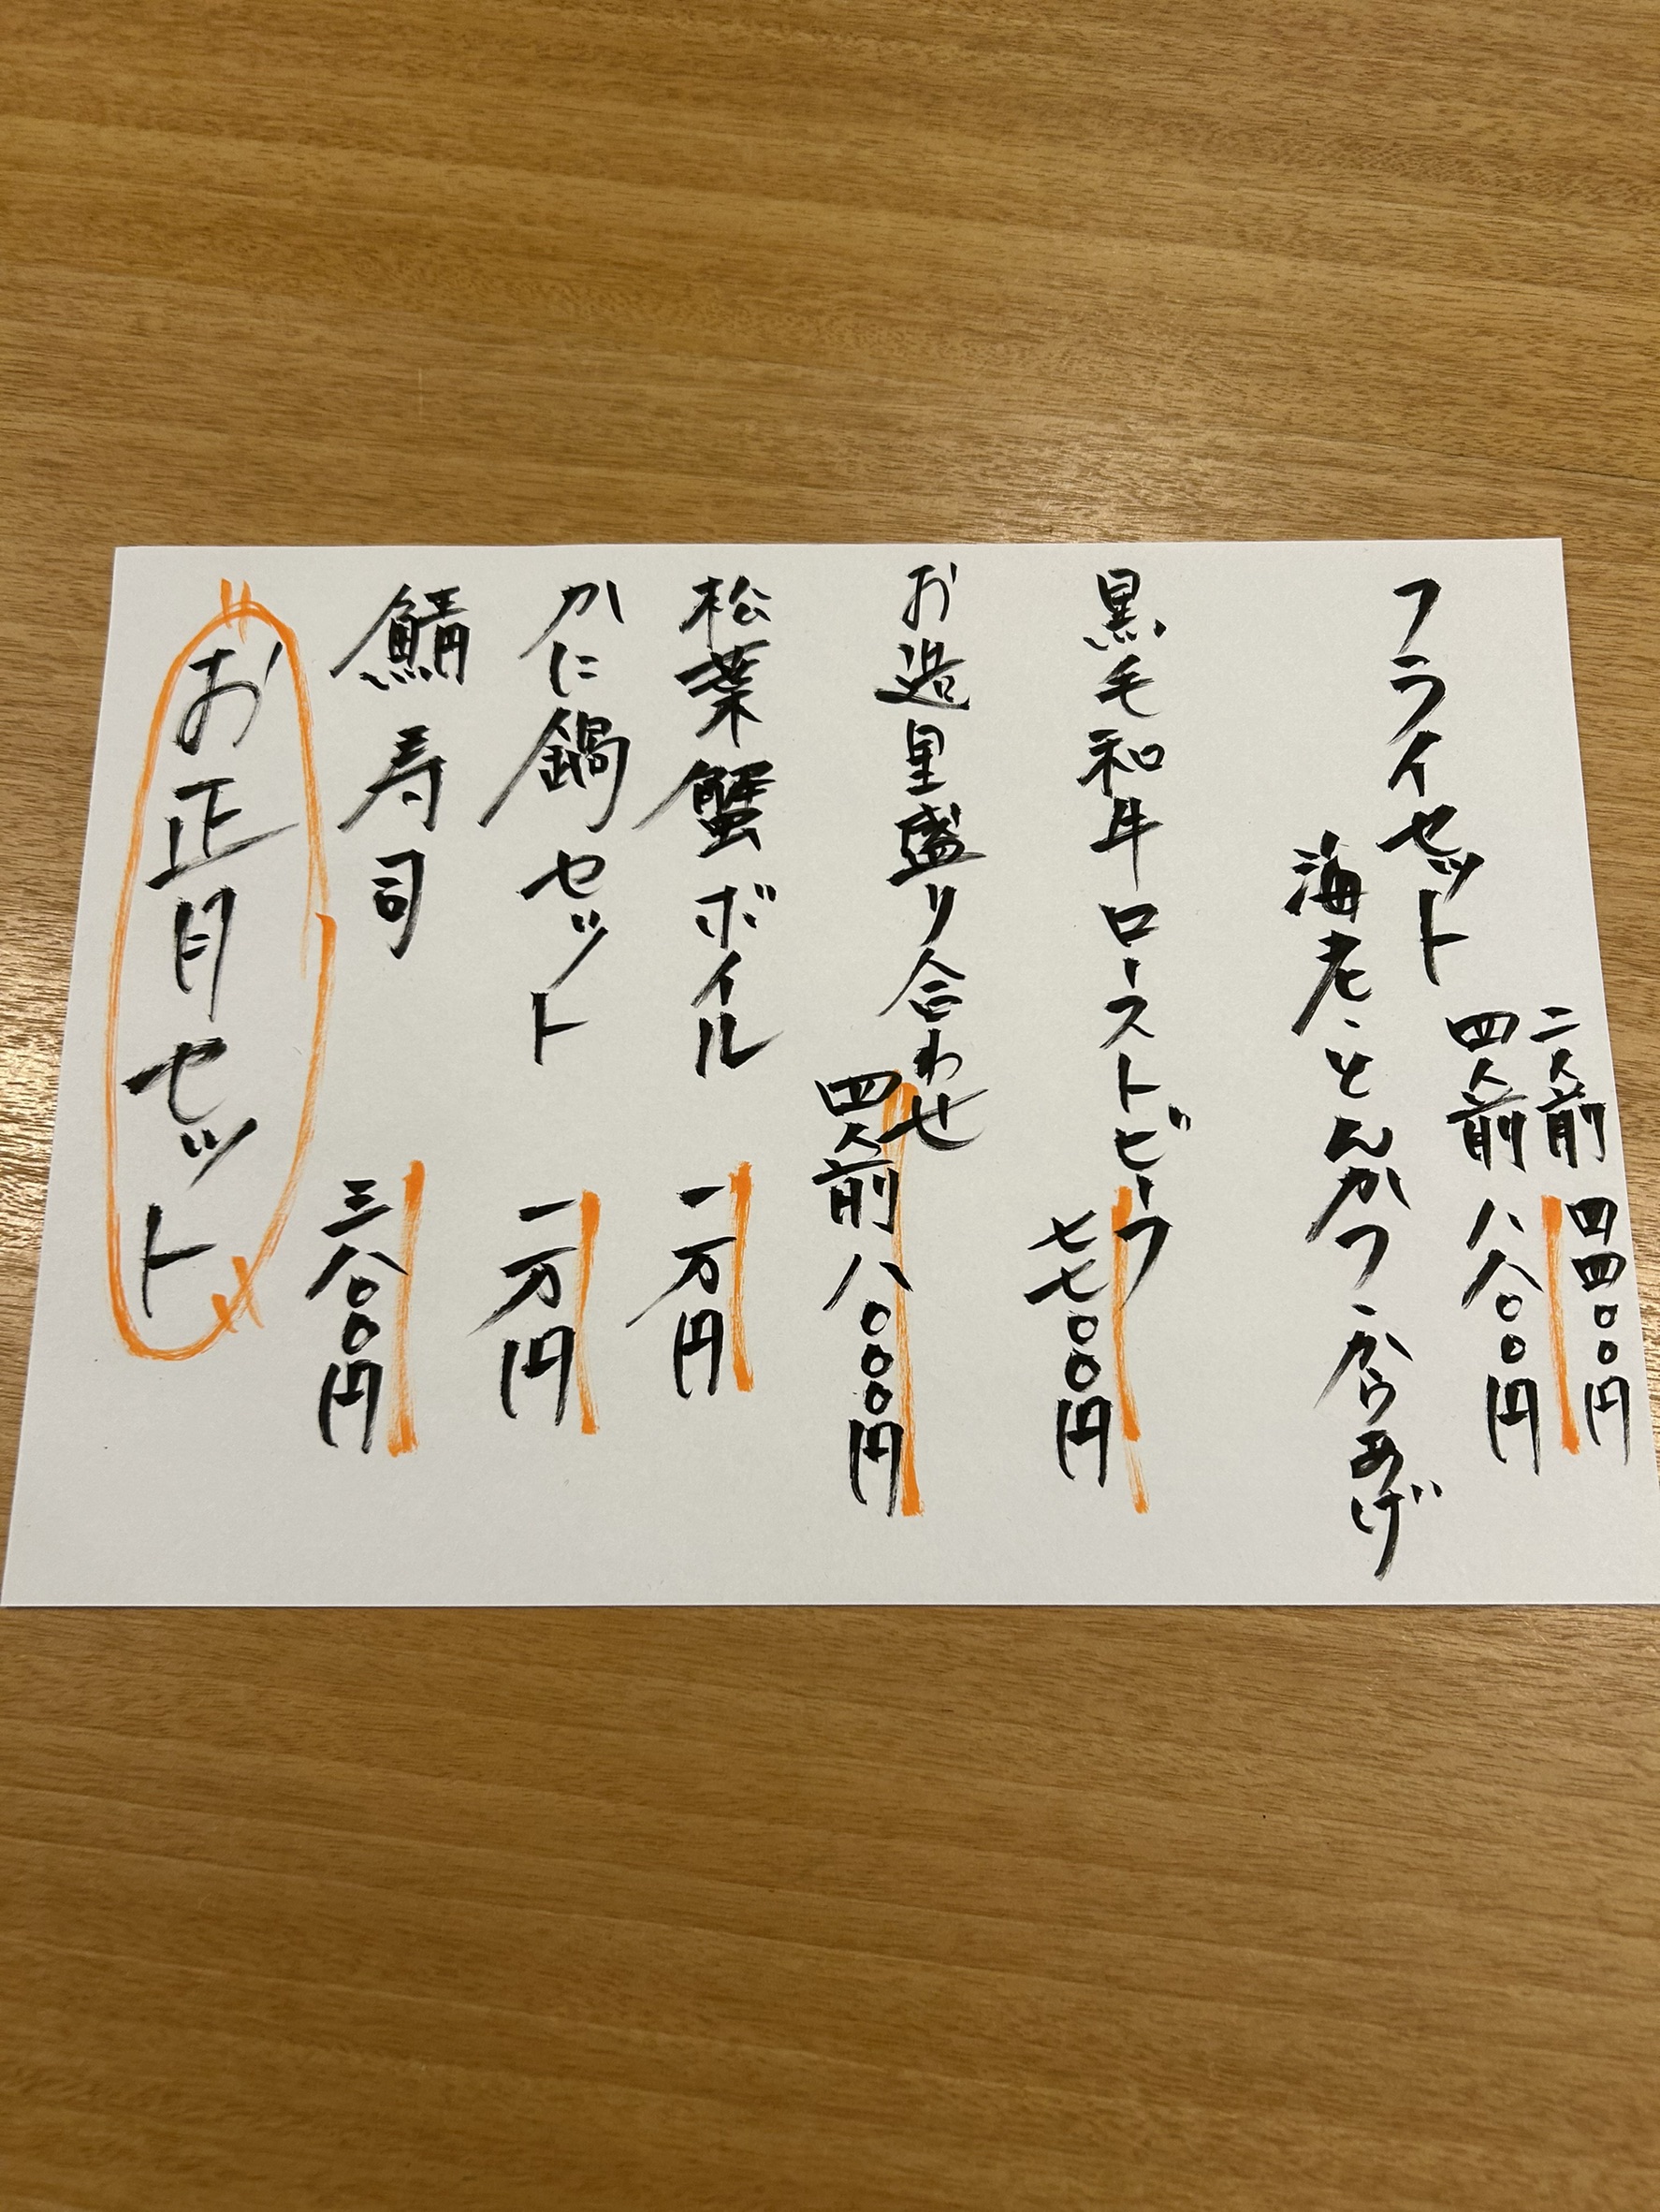 二人前 四四〇〇円
四人前 八八〇〇円
フライセット
海老、とんかつ、からあげ
黒毛和牛ローストビーフ
七七〇〇円
お造里盛り合わせ
四人前 八〇〇〇円
松葉蟹ボイル 一万円
かに鍋セット 一万円
鯖寿司 三八〇〇円
お正月セット